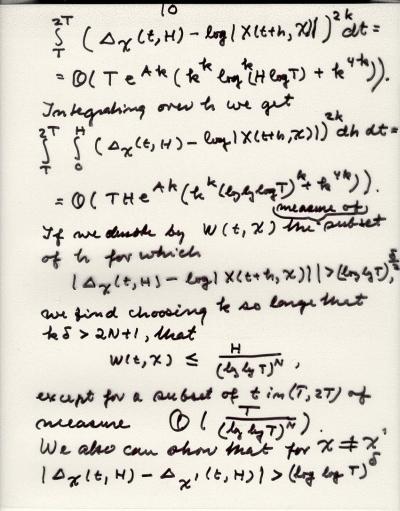 10
∫_T^{2T} (Δ_χ(t, H) − log|X(t+h, χ)|)^{2k} dt =
= O(T e^{Ak} (k^k log^k(H log T) + k^{4k})).
Integrating over h we get
∫_T^{2T} ∫_0^H (Δ_χ(t, H) − log|X(t+h, χ)|)^{2k} dh dt =
= O(T H e^{Ak} (k^k (lg lg log T)^k + k^{4k})).
If we denote by W(t, χ) the measure of subset
of h for which
|Δ_χ(t, H) − log|X(t+h, χ)|| > (log lg T)^{δ/2},
we find choosing k so large that
kδ > 2N+1, that
W(t, χ) ≤ H/(lg lg T)^N ,
except for a subset of t in (T, 2T) of
measure O(T/(lg lg T)^N).
We also can show that for χ ≠ χ'
|Δ_χ(t, H) − Δ_χ'(t, H)| > (log log T)^δ